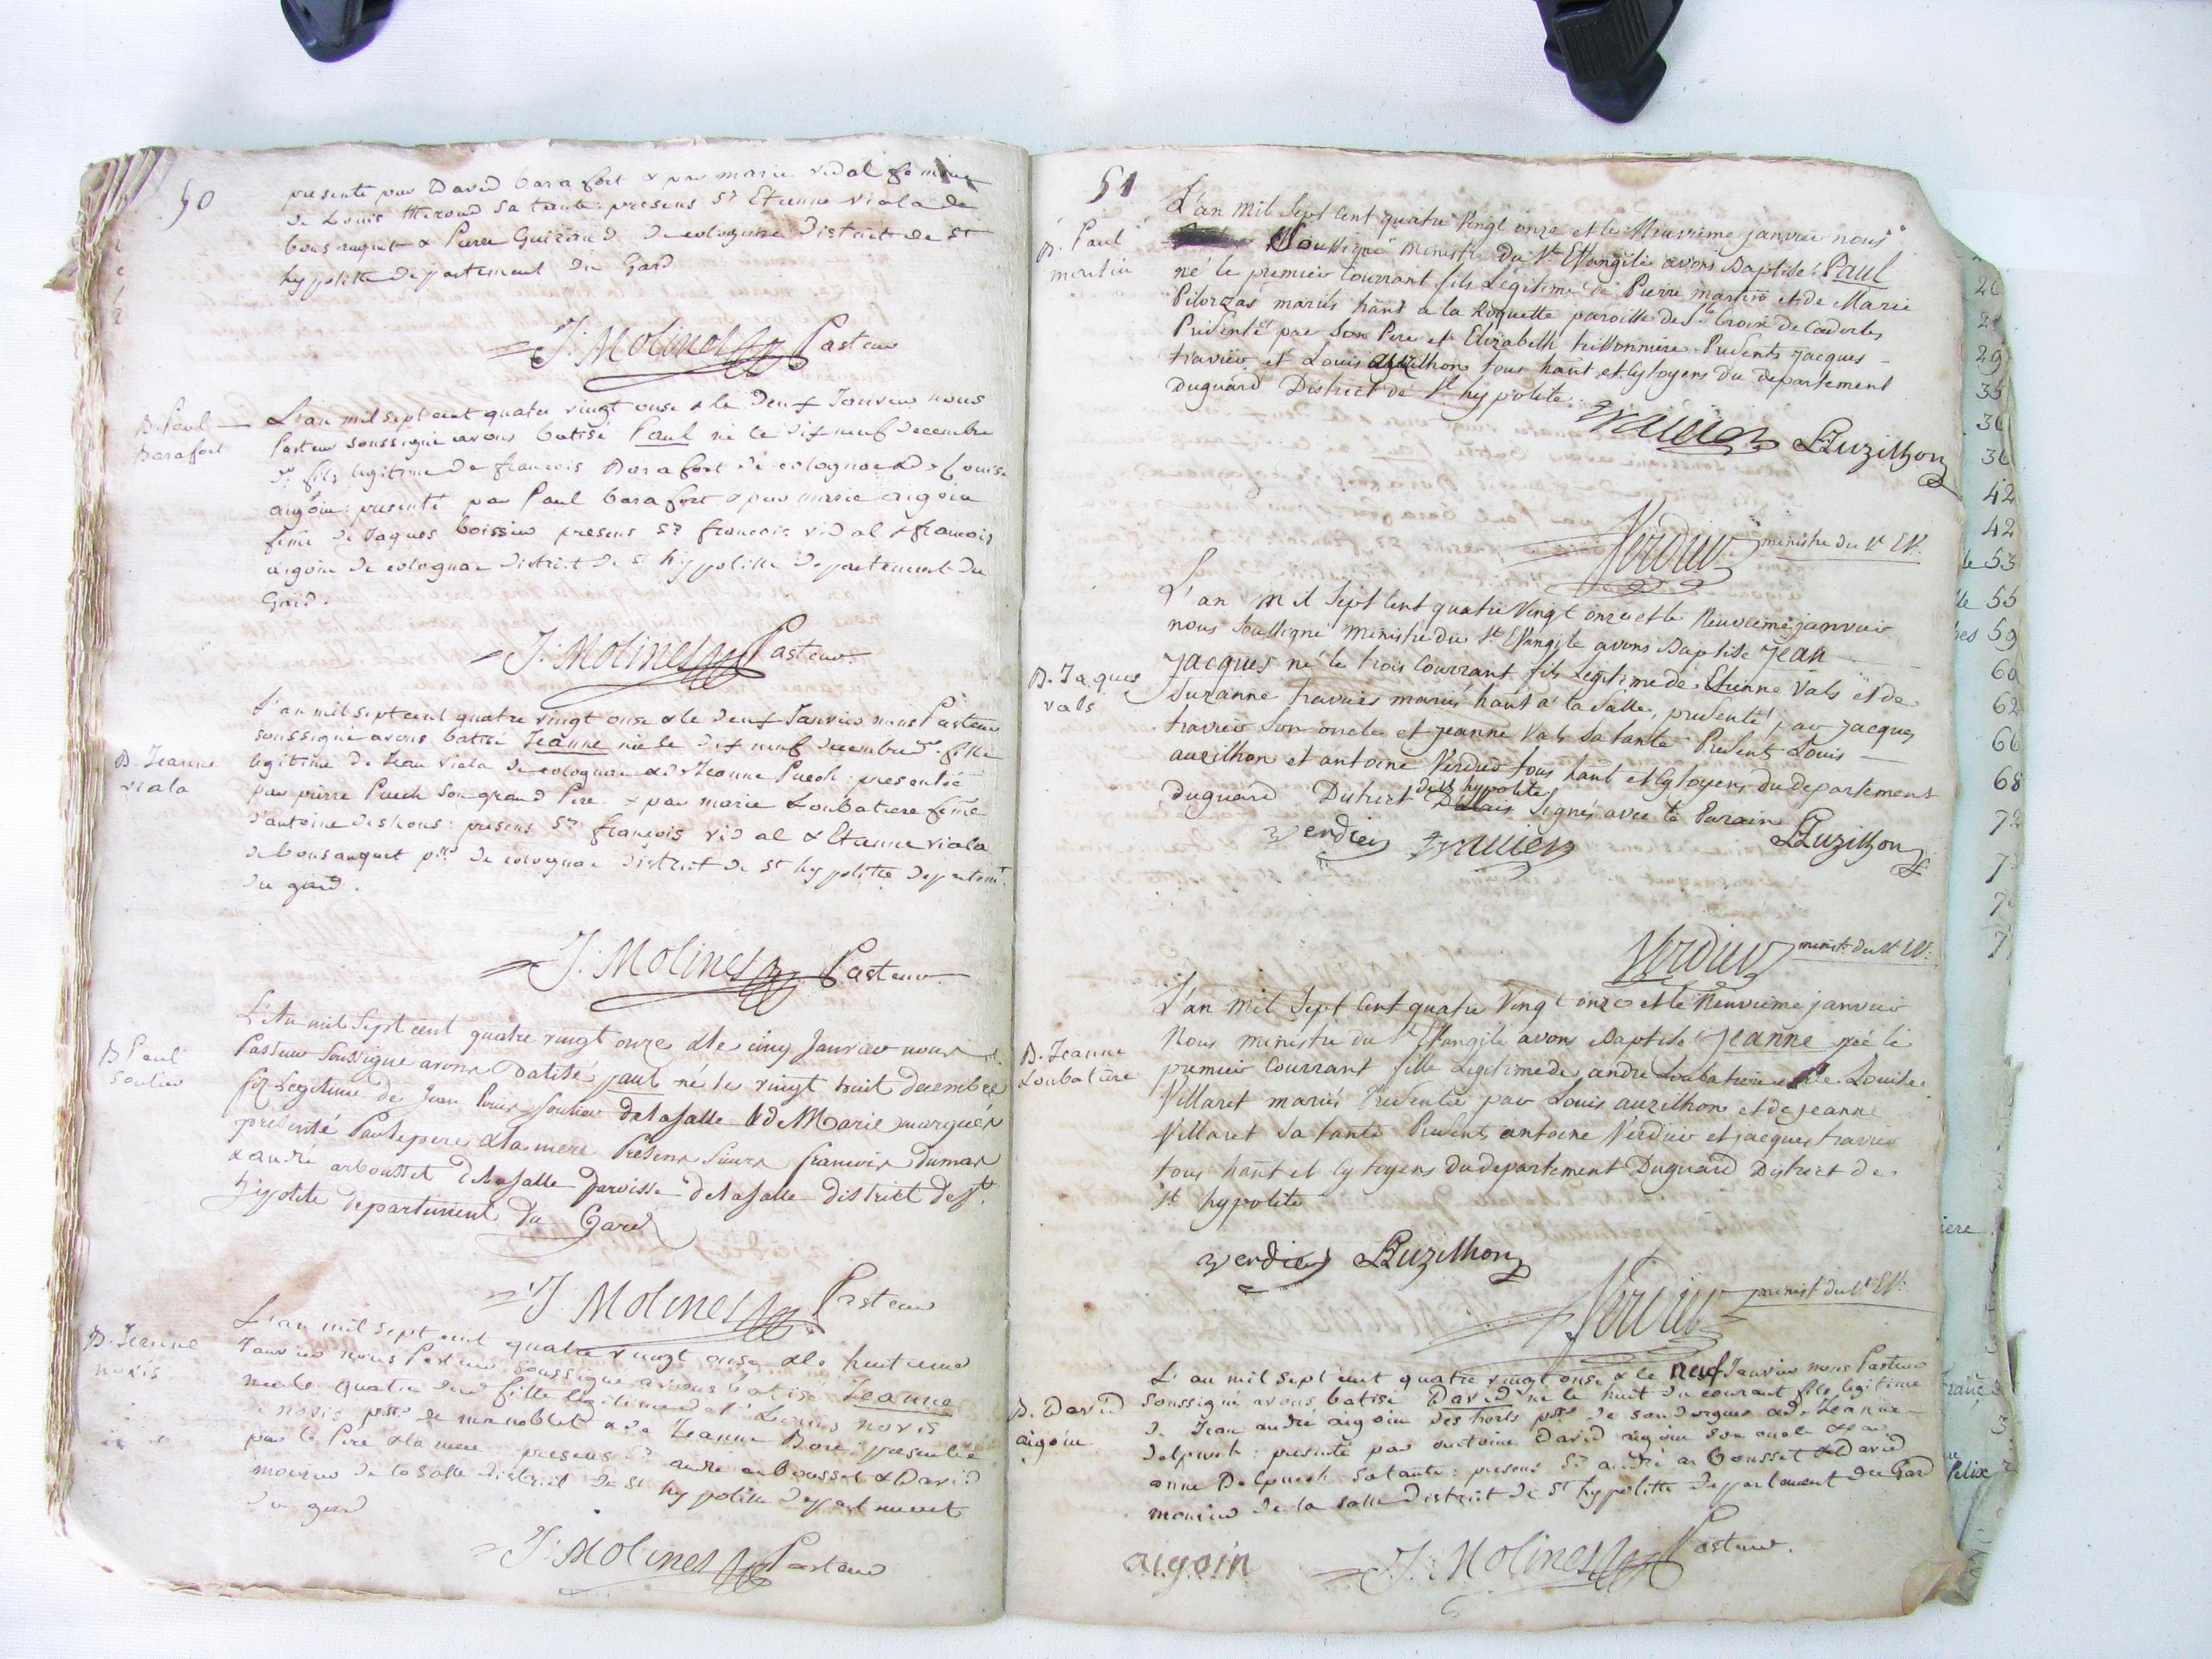 50
presenté par David barafort & par marie vidal femme
de Louis therond sa tante: presens Sr Etienne viala de
bousanquet & Pierre Guiraud de colognac District de St
hypolitte departement du Gard
J: Molines Pasteur
B. Paul
Barafort
L'an mil sept cent quatre vingt onze & le deux Janvier nous
Pasteur soussigné avons batisé Paul né le dix neuf decembre
dr fils legitime de francois Barafort de colognac & de Louise
aigoin: presenté par Paul barafort & par marie aigoin
feme de Jaques boissier presens Srs francois vidal & francois
aigoin de colognac district de st hyppolitte departement du
Gard.
J: Molines Pasteur.
B. Jeanne
viala
L'an mil sept cent quatre vingt onze & le deux Janvier nous Pasteur
soussigné avons batisé Jeanne née le dix neuf decembre dr fille
legitime de Jean viala de colognac & de Jeanne Puech: presentée
par pierre Puech son grand Pere & par marie Loubatiere feme
d'antoine deshons: presens Srs françois vidal & Etienne viala
de bousanquet psse de colognac district de st hypolitte departemt
du gard.
J: Molines Pasteur
B Paul
soulier
L'An mil Sept cent quatre vingt onze & le cinq Janvier nous
Pasteur soussigné avons Batisé paul né le vingt huit decembre dr
fils legitime de Jean Louis soulier de lasalle & de Marie margués
présenté Par le pere & la mere Presens sieurs francois Dumas
& andré arbousset de lasalle paroisse de lasalle district de St
hipolite departement du Gard
J: Molines Pasteur
B. Jeanne
novis
L'an mil sept cent quatre vingt onze & le huitieme
Janvier nous Pasteur soussigné avons batisé Jeanne
née le quatre dud fille legitime de Louis novis
de novis psse de manoblet & de Jeanne Bore: presentée
par le Pere & la mere: presens Srs andré arbousset & David
mourier de la salle district de st hypolitte departement
du gard
J: Molines Pasteur
51
B. Paul
martin
L'an mil Sept Cent quatre Vingt onze et le Neuvieme janvier nous
Soussigné Ministre du St Evangile avons Baptisé Paul
né le premier Courrant fils Légitime de Pierre martin et de Marie
mariés hant a la Roquette paroisse de Ste Croix de Caderles
Présenté par Son Pere et Elizabeth Présents Jacques
travier et Louis auzilhon tous hant et Cytoyens du departement
duguard District de St hypolite.
Travier LAuzilhon
Verdier ministre du St EV.
B. Jaques
vals
L'an Mil Sept Cent quatre Vingt onze et le Neuvieme janvier
nous Soussigné Ministre du St Evangile avons Baptisé Jean
Jacques né le trois Courrant fils Légitime de Etienne Vals et de
Suzanne travier mariés hant a la Salle, présenté par Jacques
travier Son oncle et jeanne Vals Sa tante Présents Louis
auzilhon et antoine Verdier tous hant et Cytoyens du departement
duguard District de St hypolite Signés avec le Parain
verdier Travier LAuzilhon
Verdier minist. du St EV.
B. Jeanne
Loubatiere
L'an Mil Sept Cent quatre Vingt onze et le Neuvieme janvier
Nous ministre du St Evangile avons Baptisé Jeanne née le
premier Courrant fille Légitime de andre Loubatiere et de Louise
Villaret mariés Présentée par Louis auzilhon et de jeanne
Villaret Sa tante Présents antoine Verdier et jacques travier
tous hant et Cytoyens du departement Duguard District de
St hypolite
verdier LAuzilhon
Verdier minist du St EV.
B. David
aigoin
L'an mil sept cent quatre vingt onze & le neuf Janvier nous Pasteur
soussigné avons batisé David né le huit du courant fils legitime
de Jean andré aigoin des horts psse de soudorgues & de Jeanne
Delpuech: presenté par antoine David aigoin son oncle & par
anne Delpuech sa tante: presens Srs andré arbousset & David
mourier de la salle district de st hypolitte departement du Gard
aigoin J: Molines Pasteur.
29
35
36
36
42
42
53
55
59
60
62
66
68
72
felix